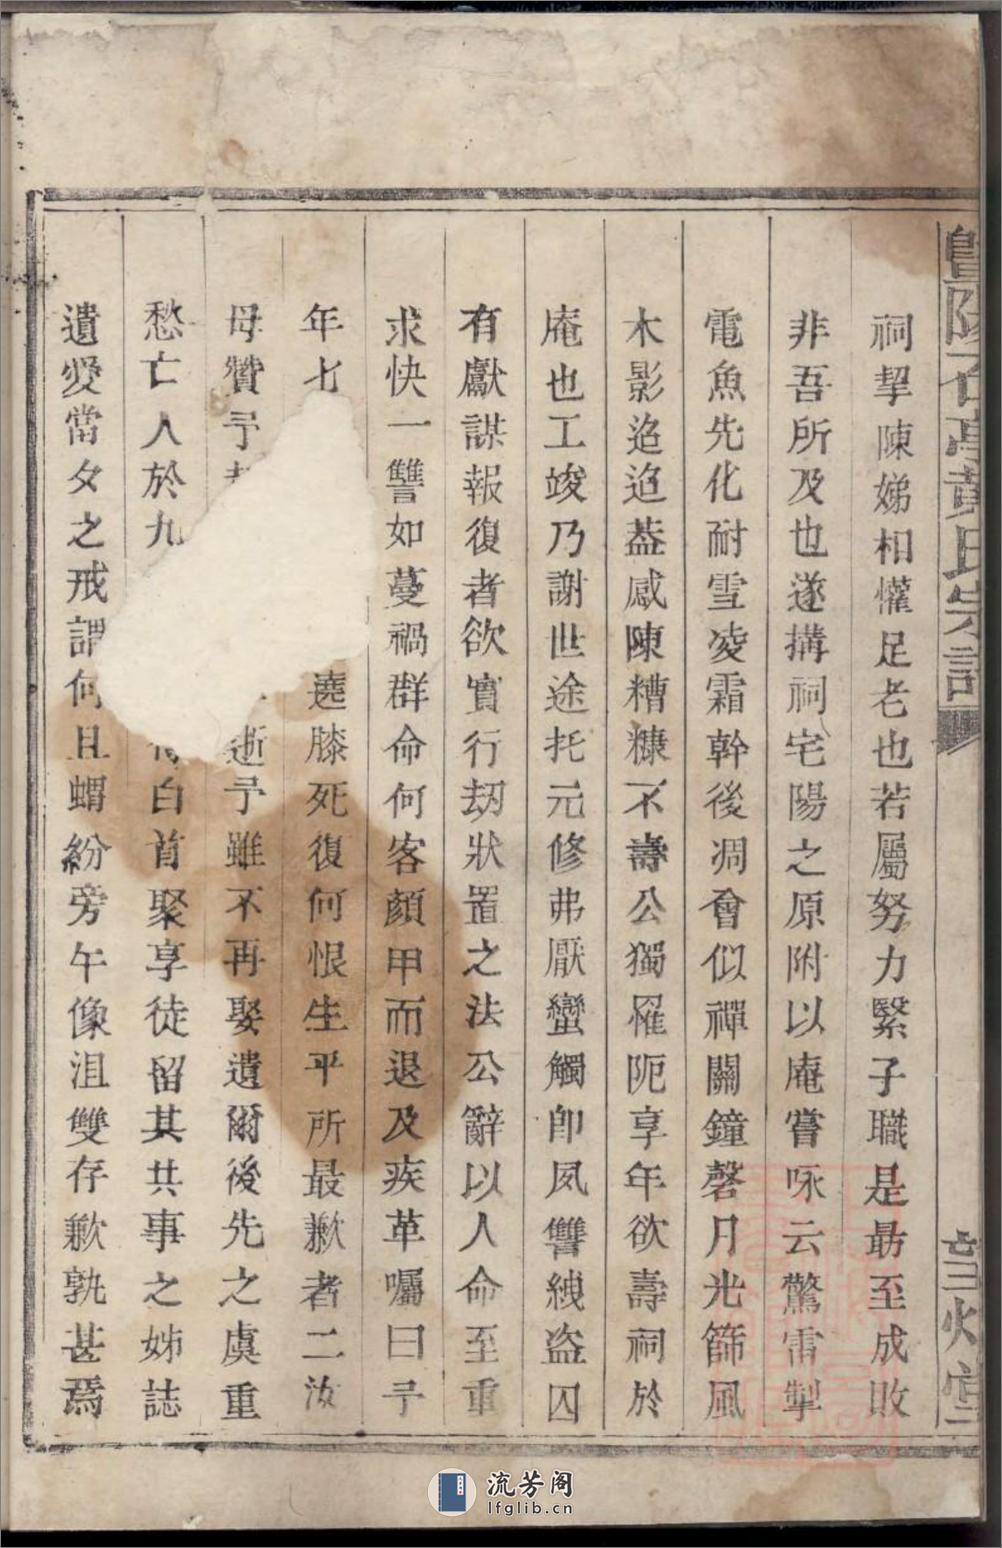 暨陽石亭黃氏宗譜
望烟堂
祠挈陳娣相懽足老也若屬努力緊子職是最至成敗
非吾所及也遂搆祠宅陽之原附以庵嘗咏云驚雷掣
電魚先化耐雪凌霜幹後凋會似禪關鐘磬月光篩風
木影迨迨葢感陳糟糠不壽公獨罹阨享年欲壽祠於
庵也工竣乃謝世途托元修弗厭蠻觸卽夙讐綫盜囚
有獻謀報復者欲實行刼狀置之法公辭以人命至重
求快一讐如蔓禍群命何客顏甲而退及疾革囑曰予
年七
遶膝死復何恨生平所最歉者二汝
母贊予
逝予雖不再娶遺爾後先之虞重
愁亡人於九
白首聚享徒留其共事之姊誌
遺愛當夕之戒謂何且蝟紛旁午像沮雙存歉孰甚焉
流芳阁
lfglib.cn